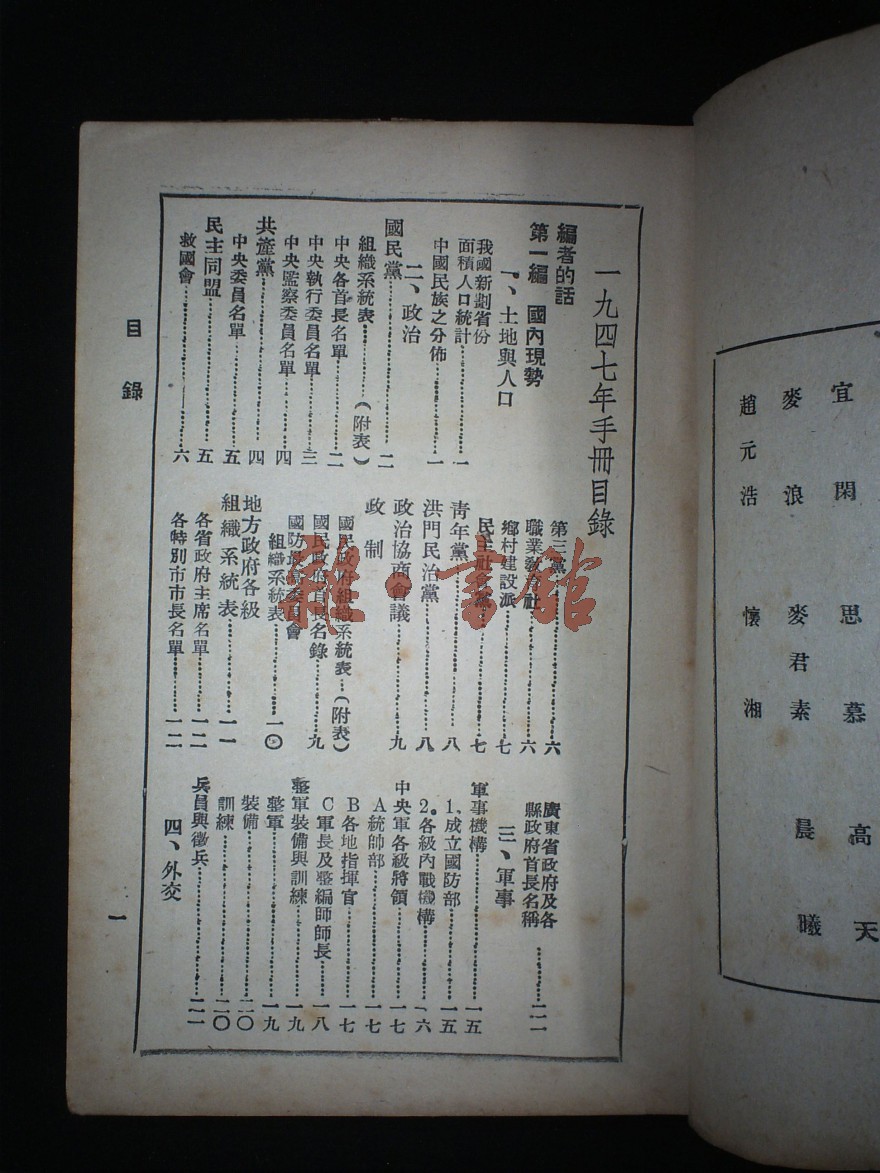 一九四七年手冊目錄
編者的話
第一編　國內現勢
一、土地與人口
我國新劃省份
面積人口統計……一
中國民族之分佈……一
二、政治
國民黨……二
組織系統表……(附表)
中央各首長名單……二
中央執行委員名單……三
中央監察委員名單……四
共產黨……四
中央委員名單……五
民主同盟……五
救國會……六
第三黨……六
職業教育社……六
鄉村建設派……七
民主社會黨……七
青年黨……八
洪門民治黨……八
政治協商會議……九
政制
國民政府組織系統表…(附表)
國民政府首長名錄……九
國防最高委員會
組織系統表……一〇
地方政府各級
組織系統表……一一
各省政府主席名單……一二
各特別市市長名單……一二
廣東省政府及各
縣政府首長名稱……一二
三、軍事
軍事機構……一五
1、成立國防部……一五
2。各級內戰機構……一六
中央軍各級將領……一七
A統帥部……一七
B各地指揮官……一七
C軍長及整編師師長……一八
整軍裝備與訓練……一九
整軍……一九
裝備……二〇
訓練……二〇
兵員與徵兵……二一
四、外交
目錄
一
雜·書館
宜閑　思慕　高天
麥浪　麥君素　晨曦
趙元浩　懷湘